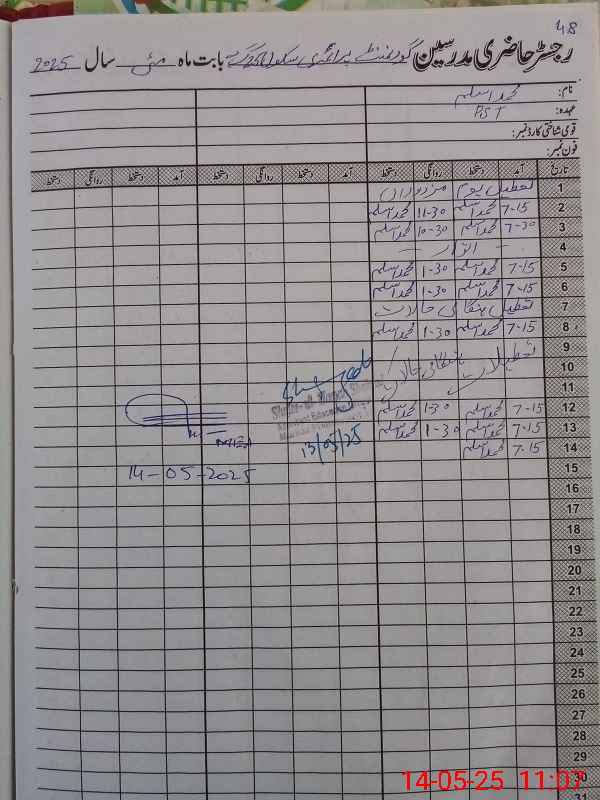 48
رجسٹر حاضری مدرسین گورنمنٹ پرائمری سکول بابت ماہ مئی سال 2025
نام: محمد اسلم
عہدہ: PST
قومی شناختی کارڈ نمبر:
فون نمبر:
تاریخ آمد دستخط روانگی دستخط آمد دستخط روانگی دستخط آمد دستخط روانگی دستخط
1 تعطیل یوم مزدوراں
2 7-15 محمد اسلم 11-30 محمد اسلم
3 7-30 محمد اسلم 10-30 محمد اسلم
4 اتوار
5 7-15 محمد اسلم 1-30 محمد اسلم
6 7-15 محمد اسلم 1-30 محمد اسلم
7 تعطیل ہنگامی حالات
8 7-15 محمد اسلم 1-30 محمد اسلم
9 تعطیلات ہنگامی حالات
10
11
12 7-15 محمد اسلم 1-30 محمد اسلم
13 7-15 محمد اسلم 1-30 محمد اسلم
13/05/25
14 7-15 محمد اسلم
15
14-05-2025
16
17
18
19
20
21
22
23
24
25
26
27
28
29
30
31
14-05-25 11:07